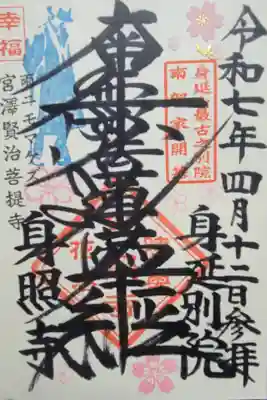 令和七年四月十二日参拝
身延別院
南部家開基
南無妙法蓮華経
幸福
雨ニモマケズ
宮澤賢治菩提寺
身照寺